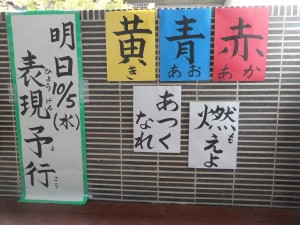 明日10/5(水)
表現予行
ひょうげんよこう
赤
あか
青
あお
黄
き
燃えよ
も
あつく
なれ